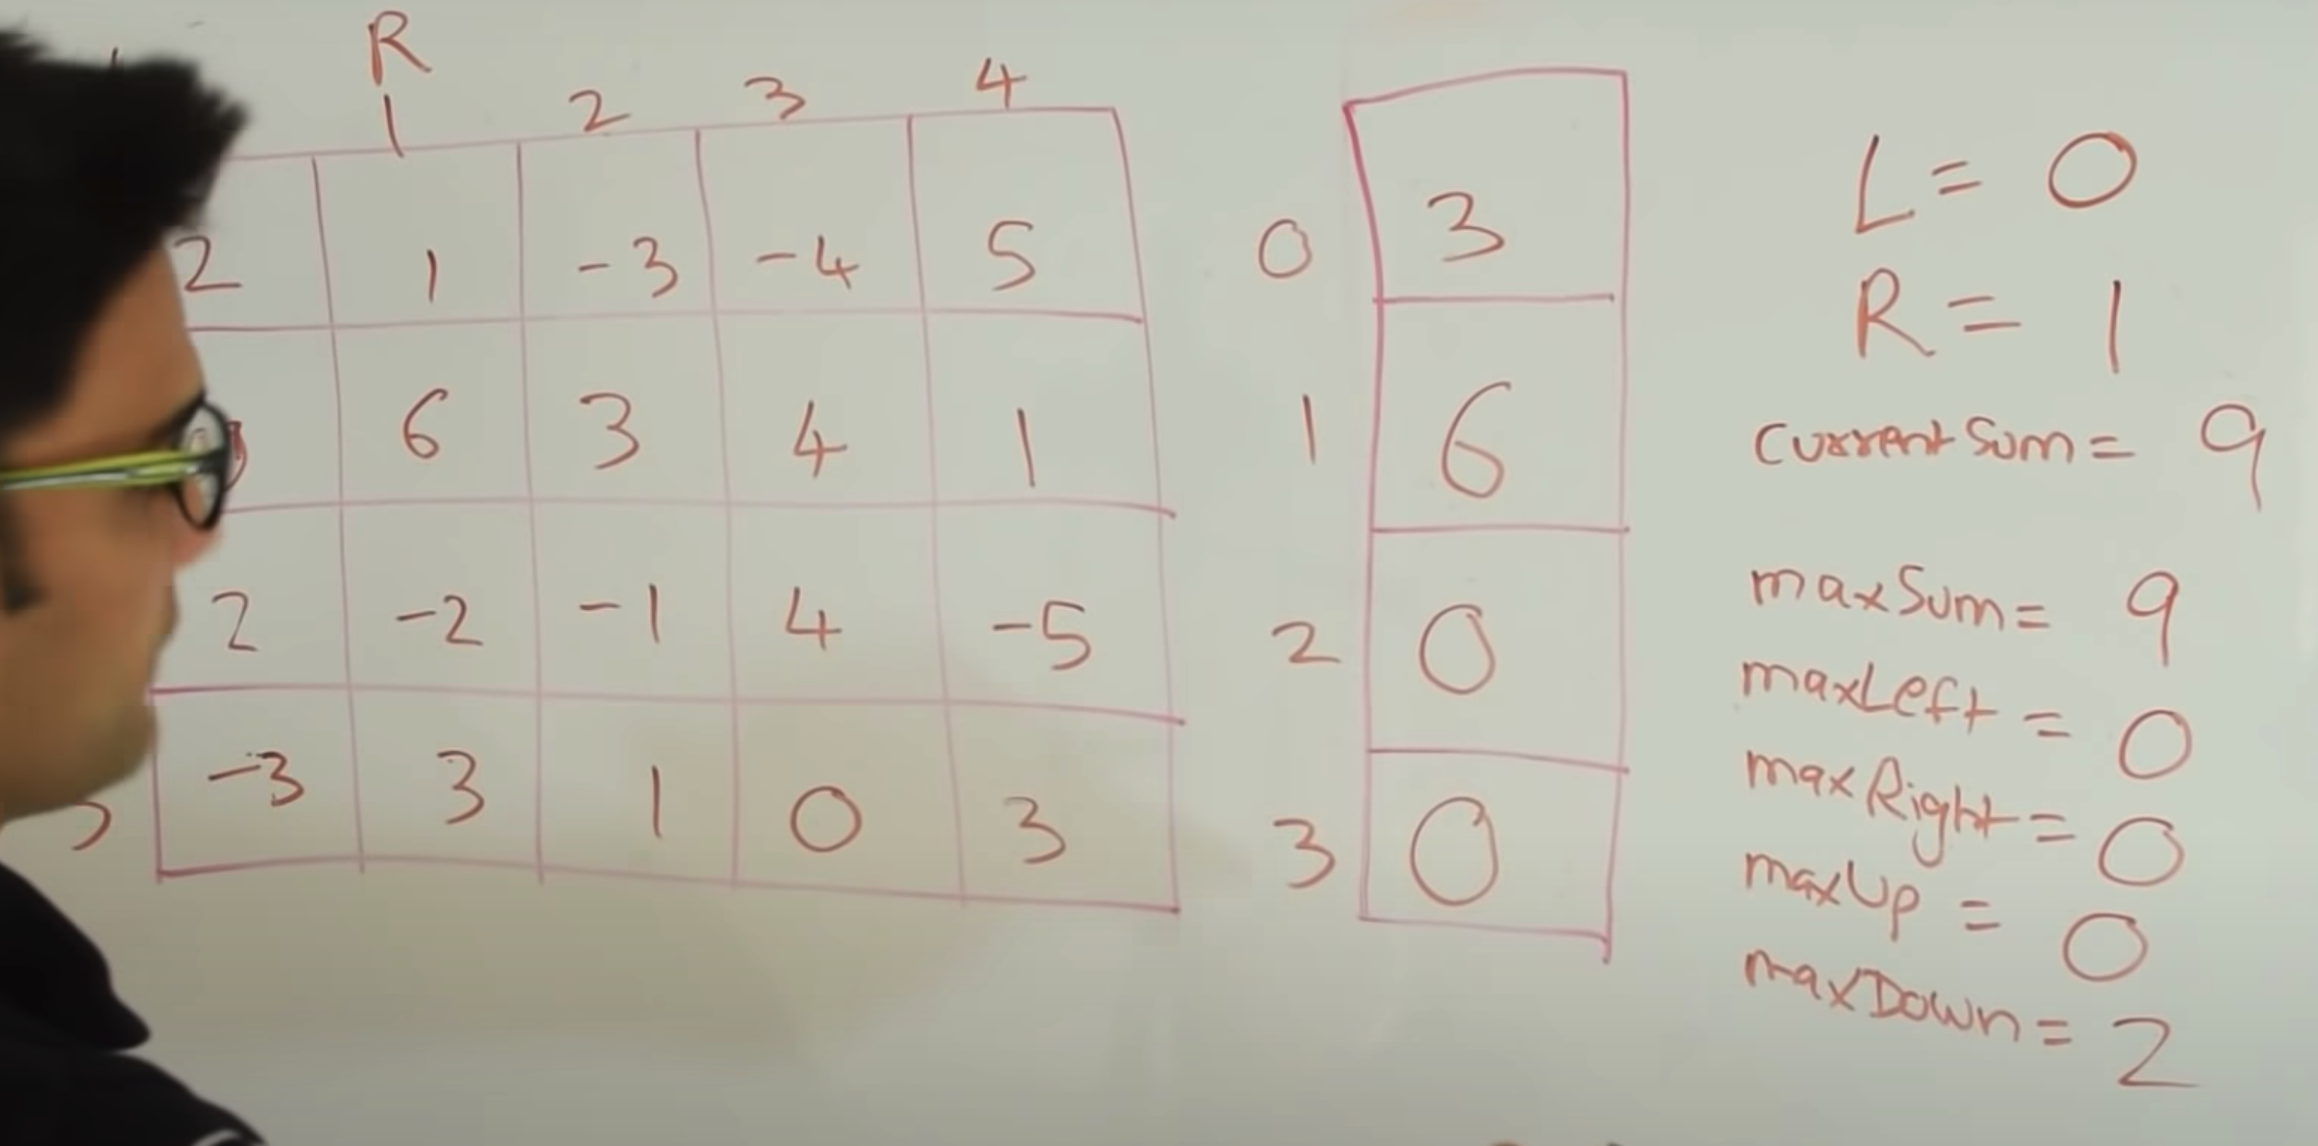 R
1 2 3 4
2 1 -3 -4 5
6 3 4 1
2 -2 -1 4 -5
-3 3 1 0 3
0 3
1 6
2 0
3 0
L = 0
R = 1
currentSum = 9
maxSum = 9
maxLeft = 0
maxRight = 0
maxUp = 0
maxDown = 2